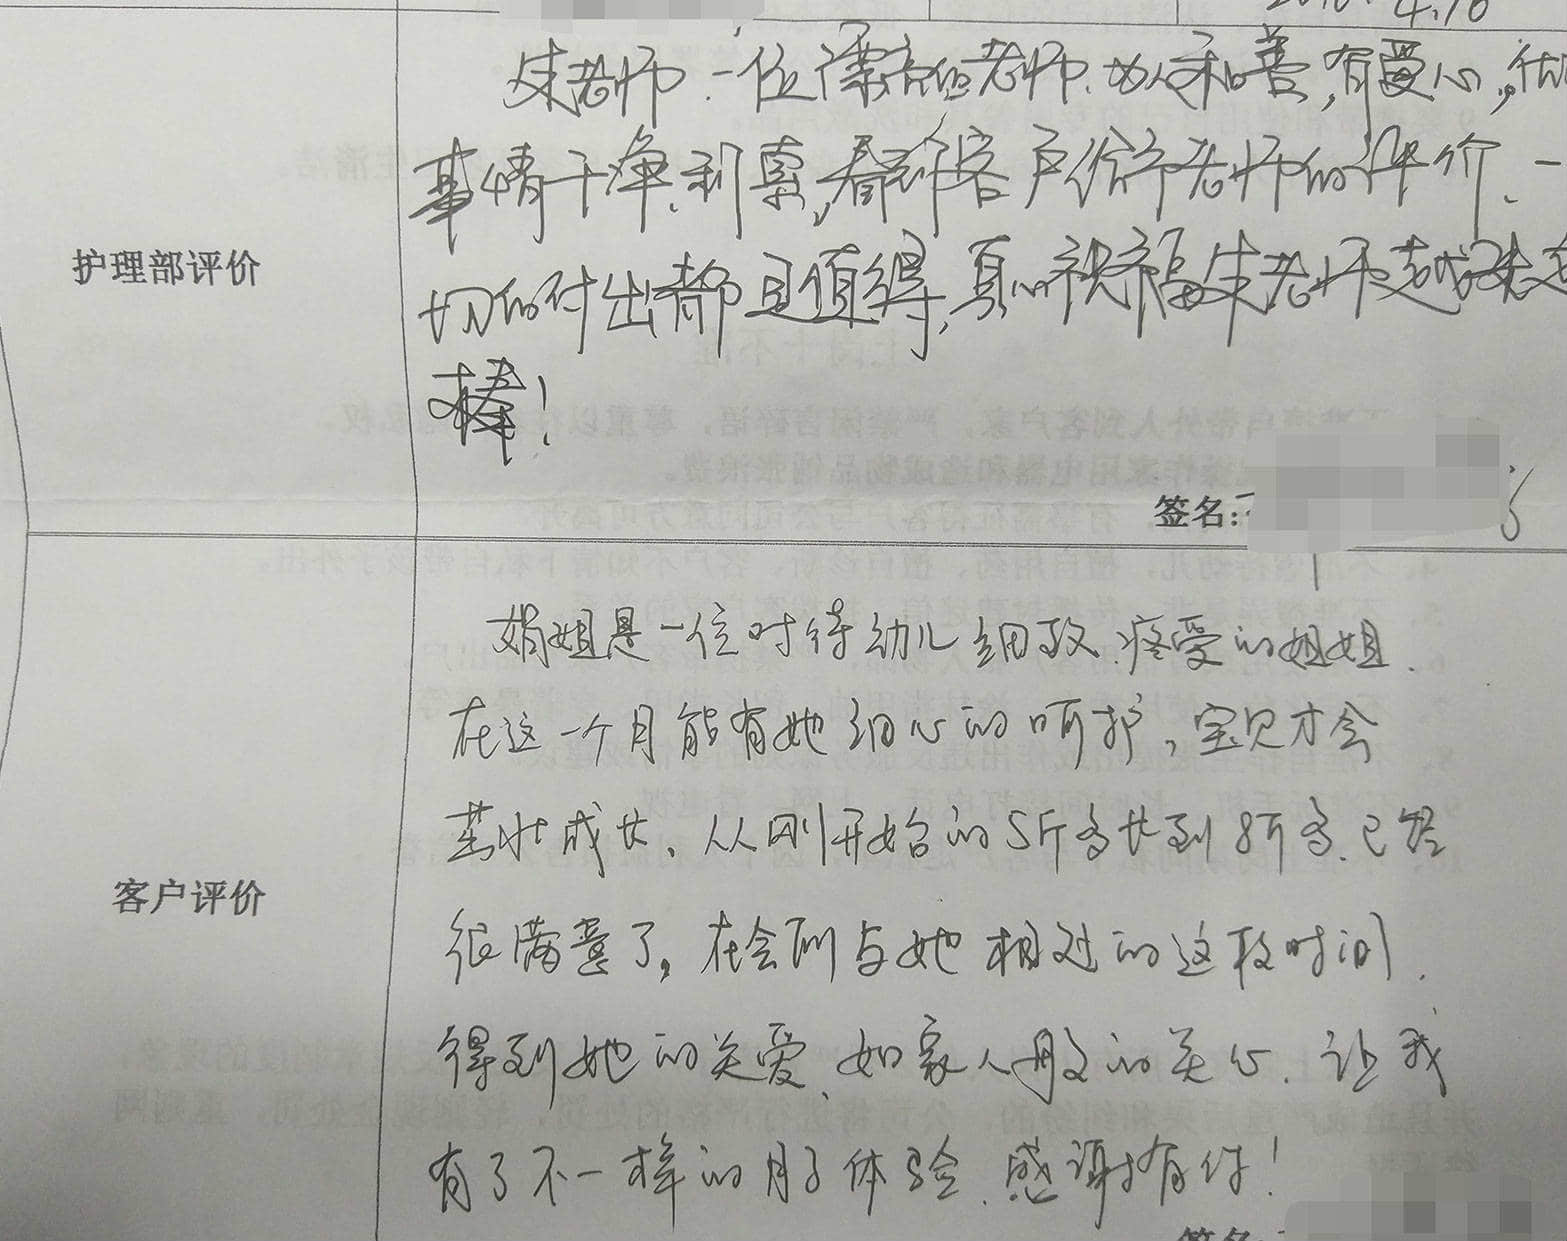 4.10
朱老师.一位漂亮的老师.为人和善,有爱心,做
事情干净.利索,看到客户给予老师的评价.一
护理部评价
切的付出都且值得,真心祝福朱老师越来越
棒!
签名:
娟姐是一位对待幼儿细致.疼爱的姐姐.
在这一个月能有她细心的呵护,宝贝才会
茁壮成长.从刚开始的5斤多长到8斤多.已经
客户评价
很满意了,在会所与她相处的这段时间.
得到她的关爱.如家人般的关心.让我
有了不一样的月子体验.感谢有你!
签名: